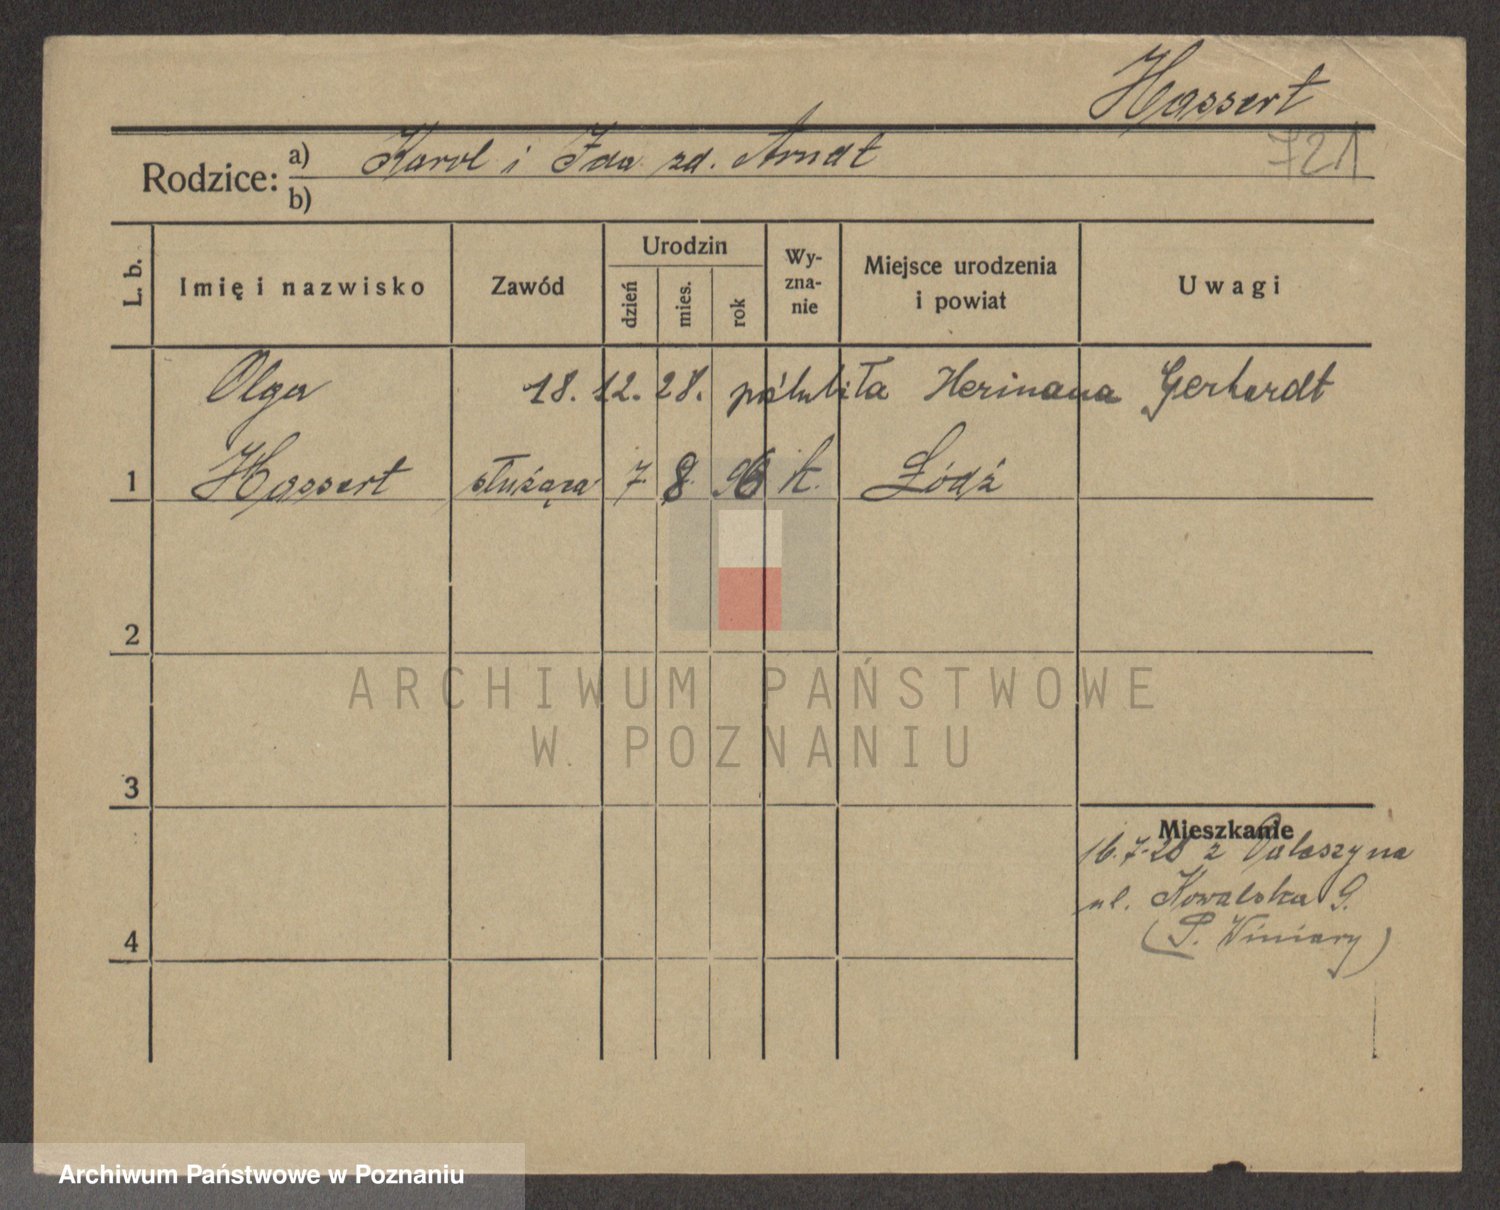 Hassert
721
Rodzice: a) Karol i Ida zd. Arndt
b)
L. b. Imię i nazwisko Zawód Urodzin dzień mies. rok Wy-zna-nie Miejsce urodzenia i powiat Uwagi
Olga 18.12.28. poślubiła Hermana Gerhardt
1 Hassert służąca 7. 8. 96 k. Łódź
2
ARCHIWUM PAŃSTWOWE
W POZNANIU
3
Mieszkanie
16.7.28 z
ul. Kowalska 9.
4 (P. Winiary)
Archiwum Państwowe w Poznaniu